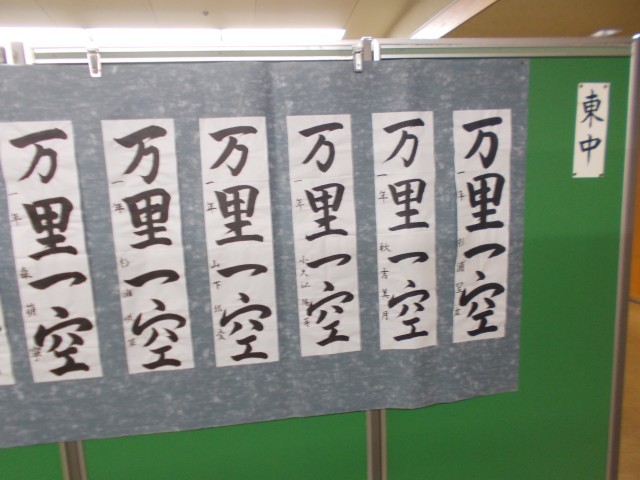 東中
万里一空
一年
万里一空
一年 秋吉美月
万里一空
一年
万里一空
一年 山下
万里一空
一年
万里一空
一年